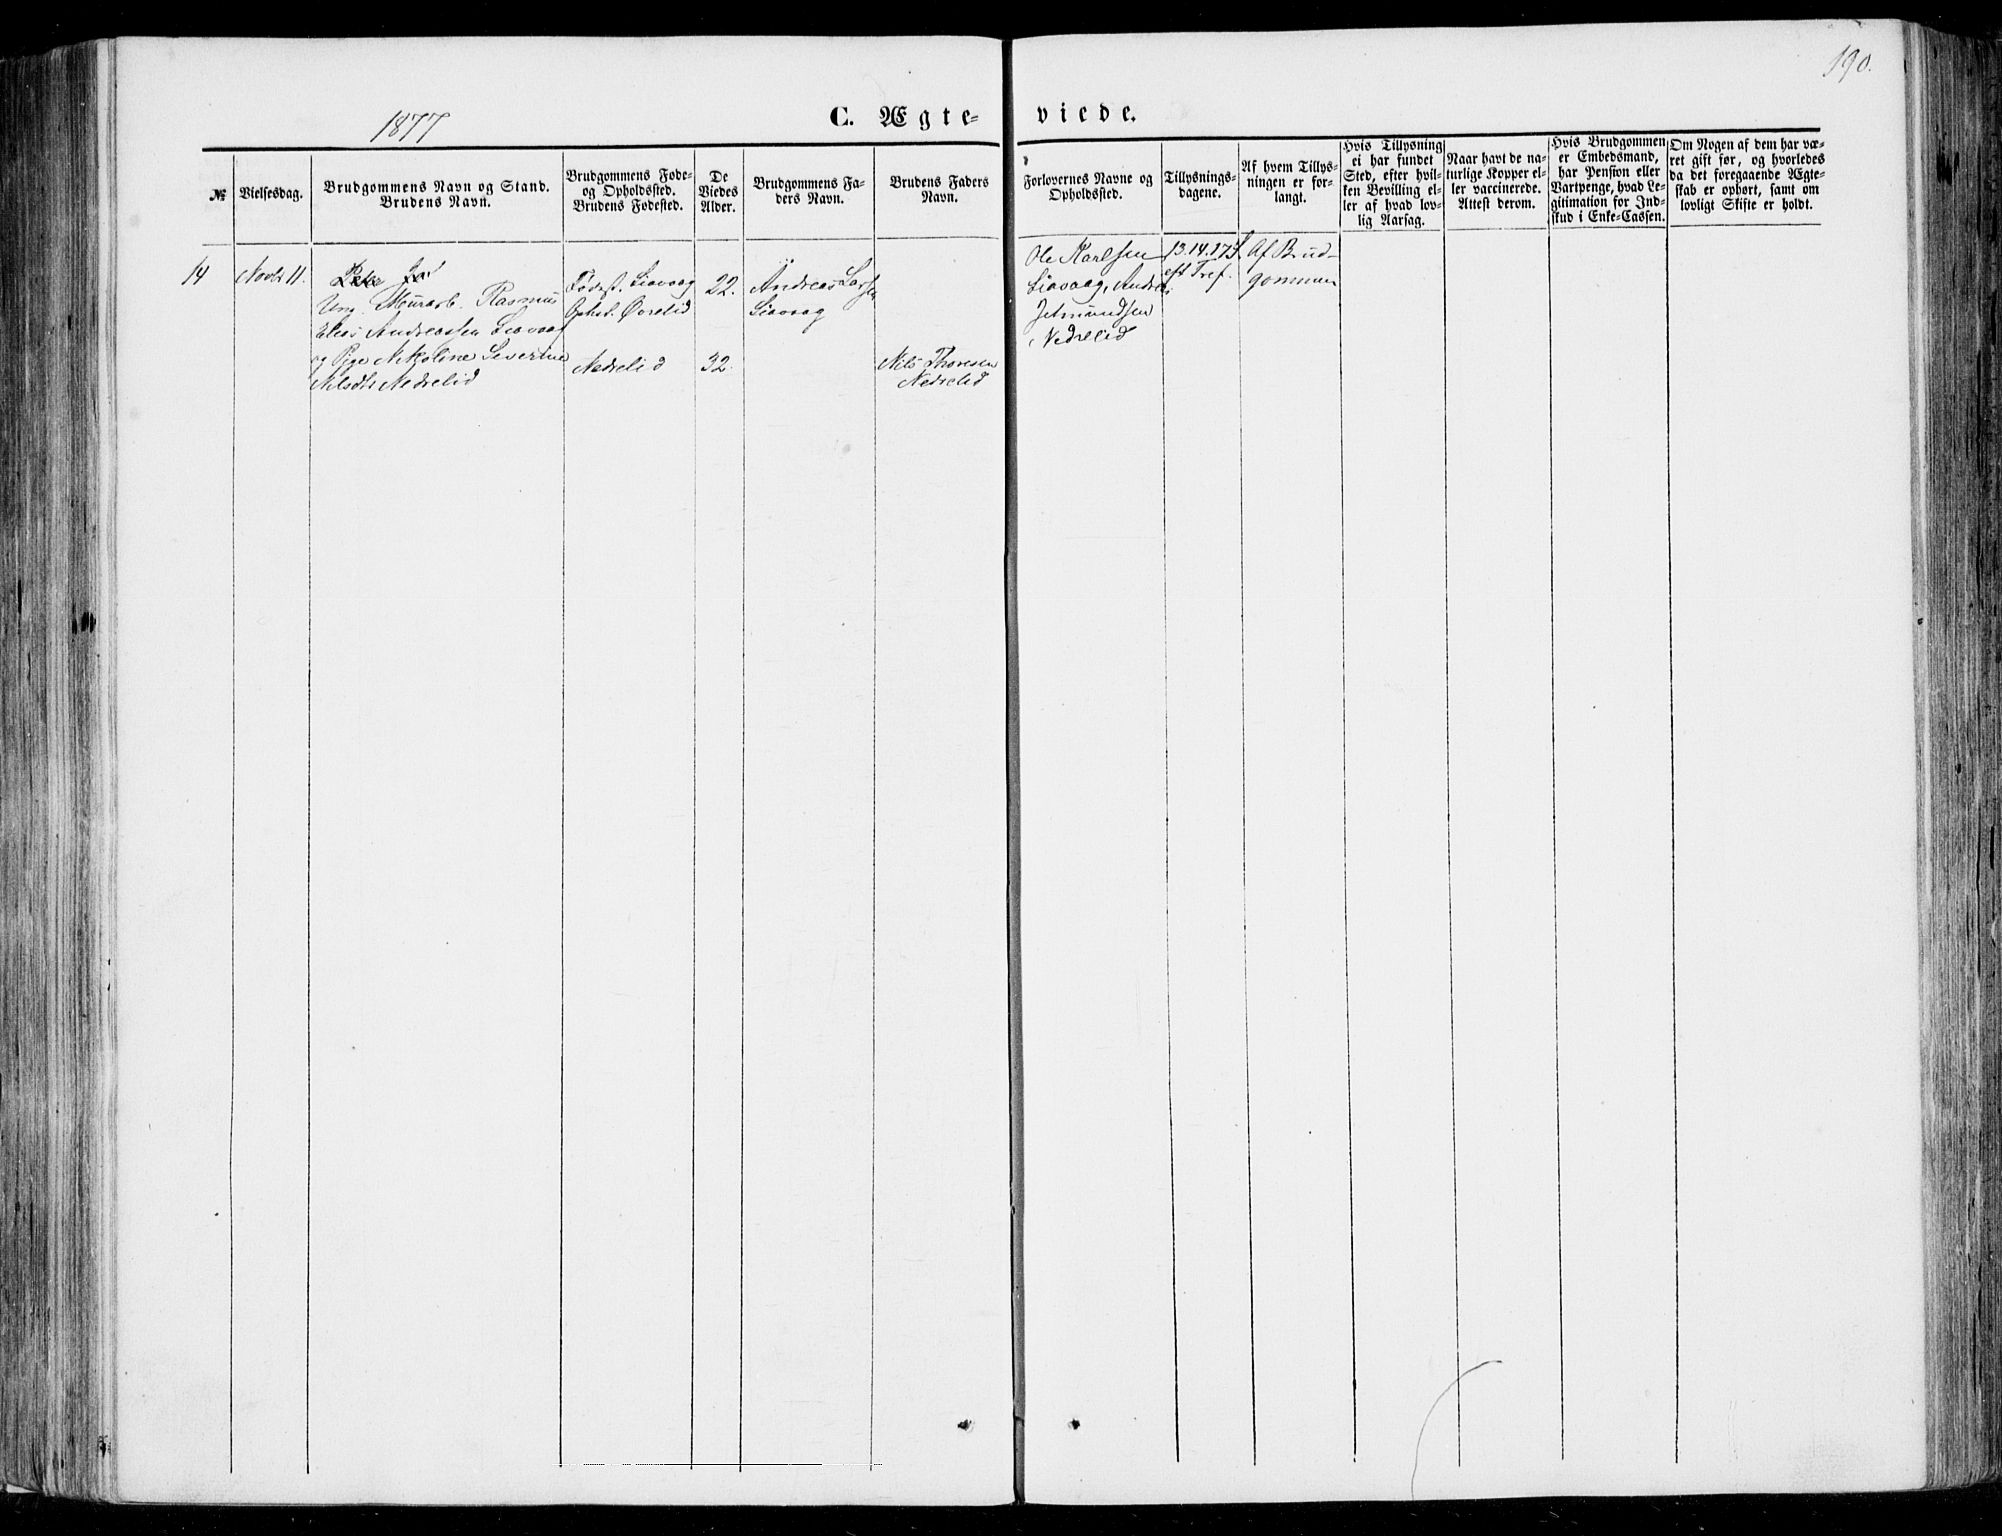 190.
1877
C. Ægte-
viede.
№
Vielsesdag.
Brudgommens Navn og Stand.
Brudens Navn.
Brudgommens Føde-
og Opholdssted.
Brudens Fødested.
De
Viedes
Alder.
Brudgommens Fa-
ders Navn.
Brudens Faders
Navn.
Forlovernes Navne og
Opholdssted.
Tillysnings-
dagene.
Af hvem Tillys-
ningen er for-
langt.
Hvis Tillysning
ei har fundet
Sted, efter hvil-
ken Bevilling el-
ler af hvad lov-
lig Aarsag.
Naar havt de na-
turlige Kopper el-
ler vaccinerede.
Attest derom.
Hvis Brudgommen
er Embedsmand,
har Pension eller
Vartpenge, hvad Le-
gitimation for Ind-
skud i Enke-Cassen.
Om Nogen af dem har væ-
ret gift før, og hvorledes
da det foregaaende Ægte-
skab er ophørt, samt om
lovligt Skifte er holdt.
14
Novbr 11.
Ung. Murarb. Rasmus
Elias Andreassen Liavaag
og Pige Nikoline Severine
Nilsdtr Nedrelid
Fødest. Liavaag
Opholdst. Øvrelid
Nedrelid
22.
32.
Andreas Larsen
Liavaag
Nils Thoresen
Nedrelid
Ole Karlsen
Liavaag, Andreas
Jetmundsen
Nedrelid
13. 14. 17 S.
eft Tref.
Af Brud-
gommen